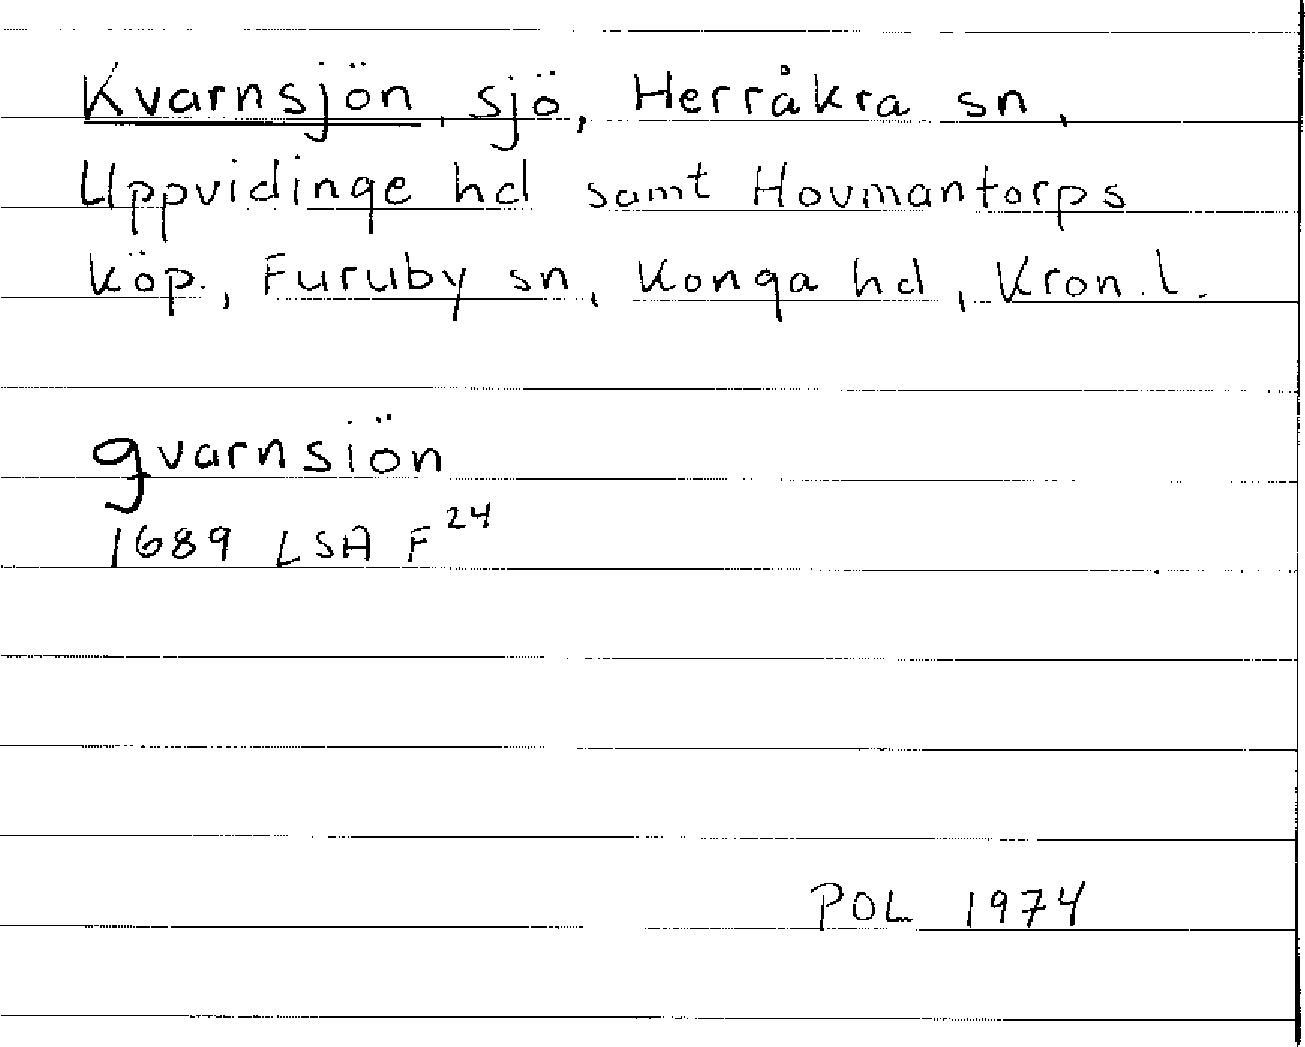 Kvarnsjön, sjö, Herråkra sn,
Uppvidinge hd samt Hovmantorps
köp., Furuby sn, Konga hd, Kron. l.
qvarnsiön
1689 LSA F²⁴
POL 1974